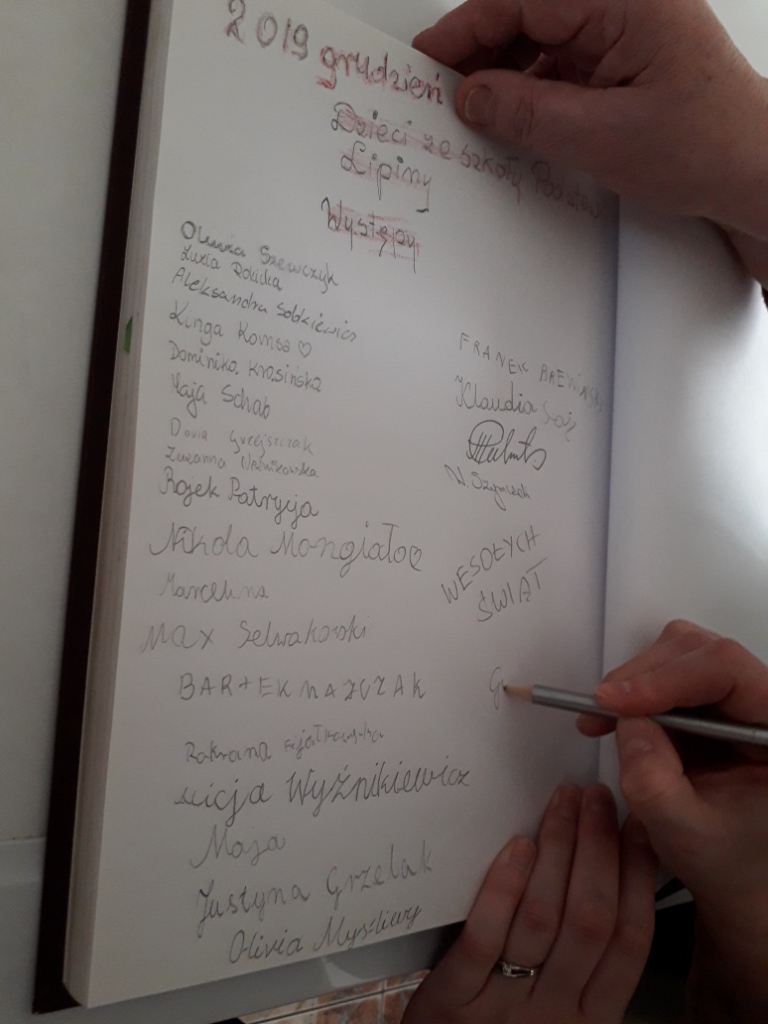 2019 grudzień
Dzieci ze szkoły Podstaw
Lipiny
Występy
Oliwia Szewczyk
Zuzia
Aleksandra Sobkiewicz
Kinga Komsa ♡
Dominika Krasińska
Kaja Schab
Daria Grzejszczak
Zuzanna
Rojek Patrycja
Nikola Mongiało
Marcelina
Max Selwakowski
BARTEK NAZCZAK
Roksana Fijałkowska
Alicja Wyźnikiewicz
Maja
Justyna Grzelak
Olivia Myśliwy
FRANEK
Klaudia
N. Szymczak
WESOŁYCH
ŚWIĄT
G